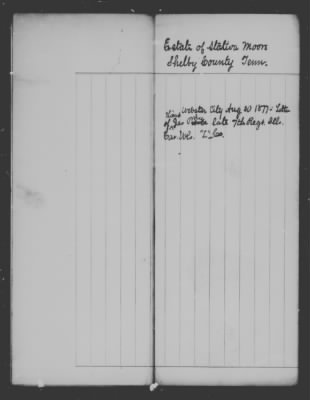 Estate of Stativa Moon
Shelby County Tenn.
Webster City Aug 20 1877 - Letter
of Jas late 7th Regt. Ills.
Cav. Vols. "L" Co.